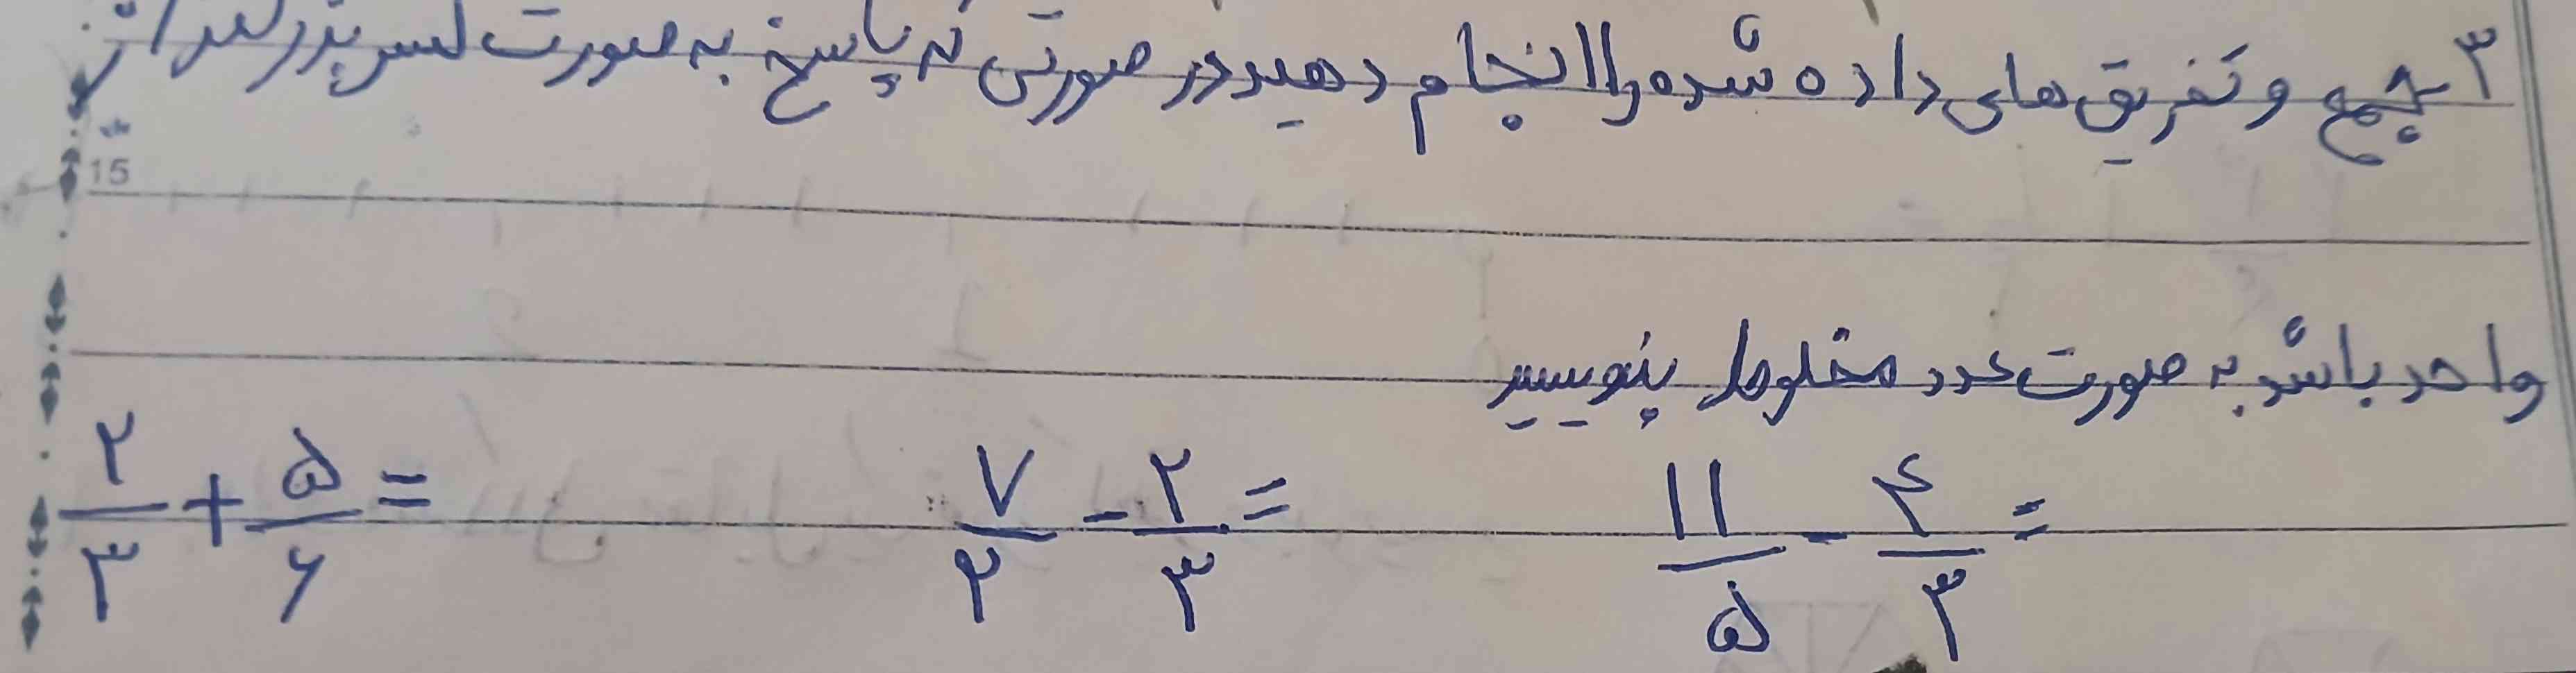 ۳- جمع و تفریق های داده شده را انجام دهید در صورتی که پاسخ به صورت کسر بزرگتر از
15
واحد باشد به صورت عدد مخلوط بنویسید
۲/۳ + ۵/۶ =   ۷/۲ - ۲/۳ =   ۱۱/۵ - ۴/۳ =